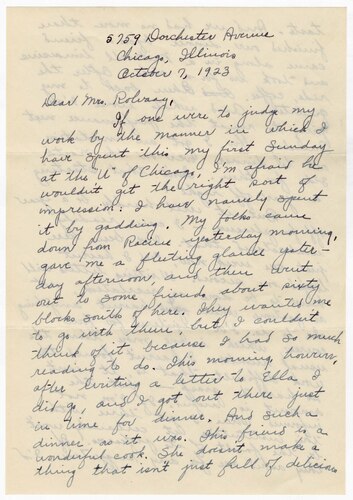 5759 Dorchester Avenue
Chicago, Illinois
October 7, 1923
Dear Mrs. Rolvaag,
If one were to judge my
work by the manner in which I
have spent this my first Sunday
at the "U" of Chicago, I'm afraid he
wouldn't get the right sort of
impression. I have namely spent
it by gadding. My folks came
down from Racine yesterday morning,
gave me a fleeting glance yester-
day afternoon, and then went
out to some friends about sixty
blocks south of here. They wanted me
to go with them, but I couldn't
think of it because I had so much
reading to do. This morning, however,
after writing a letter to Ella I
did go, and I got out there just
in time for dinner. And such a
dinner as it was. This friend is a
wonderful cook. She doesn't make a
thing that isn't just full of delicious